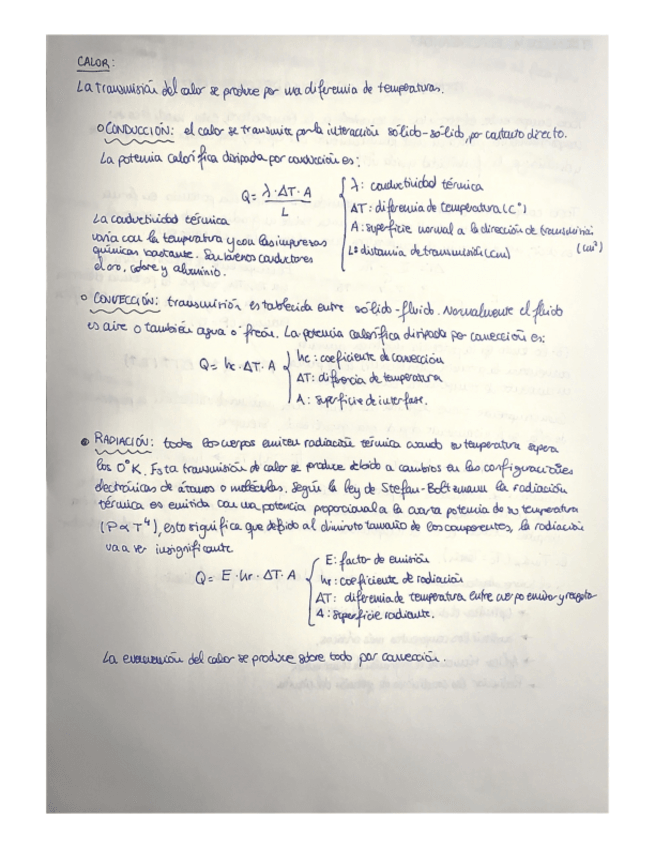 CALOR:
La transmisión del calor se produce por una diferencia de temperaturas.
○ CONDUCCIÓN: el calor se transmite por la interacción sólido-sólido, por contacto directo.
La potencia calorífica disipada por conducción es:
Q = λ·ΔT·A / L
λ: conductividad térmica
ΔT: diferencia de temperatura (C°)
A: superficie normal a la dirección de transmisión (cm²)
L: distancia de transmisión (cm)
La conductividad térmica
varía con la temperatura y con las impurezas
químicas bastante. Son buenos conductores
el oro, cobre y aluminio.
○ CONVECCIÓN: transmisión establecida entre sólido-fluido. Normalmente el fluido
es aire o también agua o freón. La potencia calorífica disipada por convección es:
Q = hc·ΔT·A
hc: coeficiente de convección
ΔT: diferencia de temperatura
A: superficie de interfase.
● RADIACIÓN: todos los cuerpos emiten radiación térmica cuando su temperatura supera
los 0°K. Esta transmisión de calor se produce debido a cambios en las configuraciones
electrónicas de átomos o moléculas. Según la ley de Stefan-Boltzmann la radiación
térmica es emitida con una potencia proporcional a la cuarta potencia de su temperatura
(P ∝ T⁴), esto significa que debido al diminuto tamaño de los componentes, la radiación
va a ser insignificante
Q = E·hr·ΔT·A
E: factor de emisión
hr: coeficiente de radiación
ΔT: diferencia de temperatura entre cuerpo emisor y receptor
A: superficie radiante.
La evacuación del calor se produce sobre todo por convección.